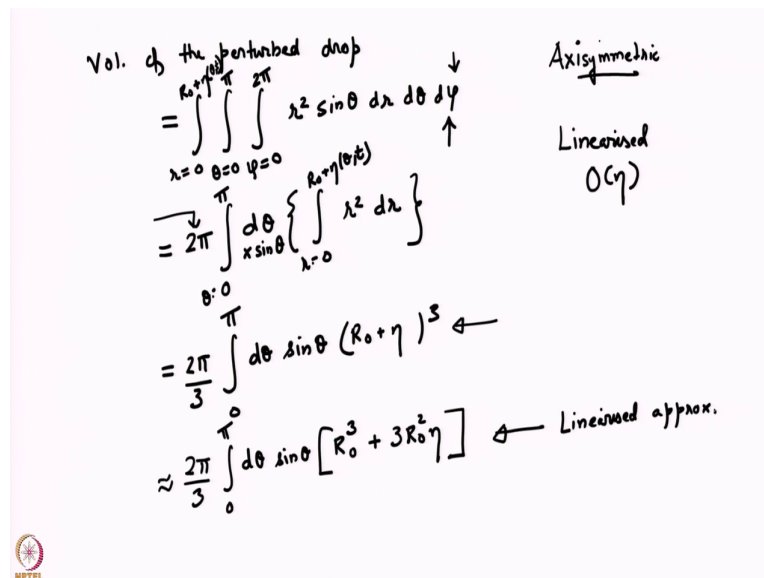 Vol. of the perturbed drop
Axisymmetric
= ∫_{r=0}^{R₀+η(θ,t)} ∫_{θ=0}^{π} ∫_{φ=0}^{2π} r² sinθ dr dθ dφ
Linearised
O(η)
= 2π ∫_{θ=0}^{π} dθ × sinθ { ∫_{r=0}^{R₀+η(θ,t)} r² dr }
= 2π/3 ∫_{0}^{π} dθ sinθ (R₀ + η)³ ←
≈ 2π/3 ∫_{0}^{π} dθ sinθ [R₀³ + 3R₀²η] ← Linearised approx.
NPTEL